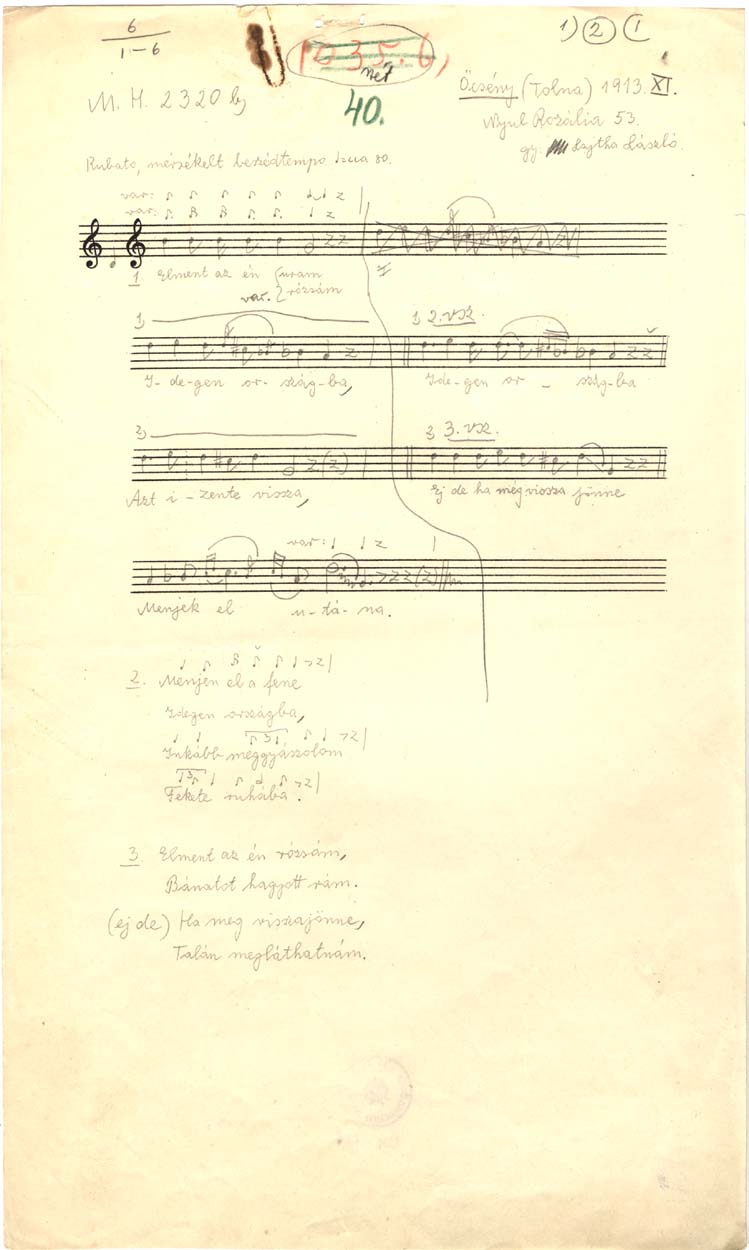 6
1-6
1035.6,
1) 2 (1
M. H. 2320 b)
40.
Őcsény (Tolna) 1913. XI.
Nyul Rozália 53.
gy: Lajtha László.
Rubato, mérsékelt beszédtempo
80.
var:
var:
1 Elment az én uram
var. rózsám
1)
1) 2. vsz.
I-de-gen or-szág-ba,
Ide-gen or - szág-ba
2)
2) 3. vsz.
Azt i-zente vissza,
Ej de ha még vissza jönne
var:
Menjek el u-tá-na.
2. Menjen el a fene
Idegen országba,
Inkább meggyászolom
3
Fekete ruhába.
3
3. Elment az én rózsám,
Bánatot hagyott rám.
(ej de) Ha meg visszajönne,
Talán megláthatnám.